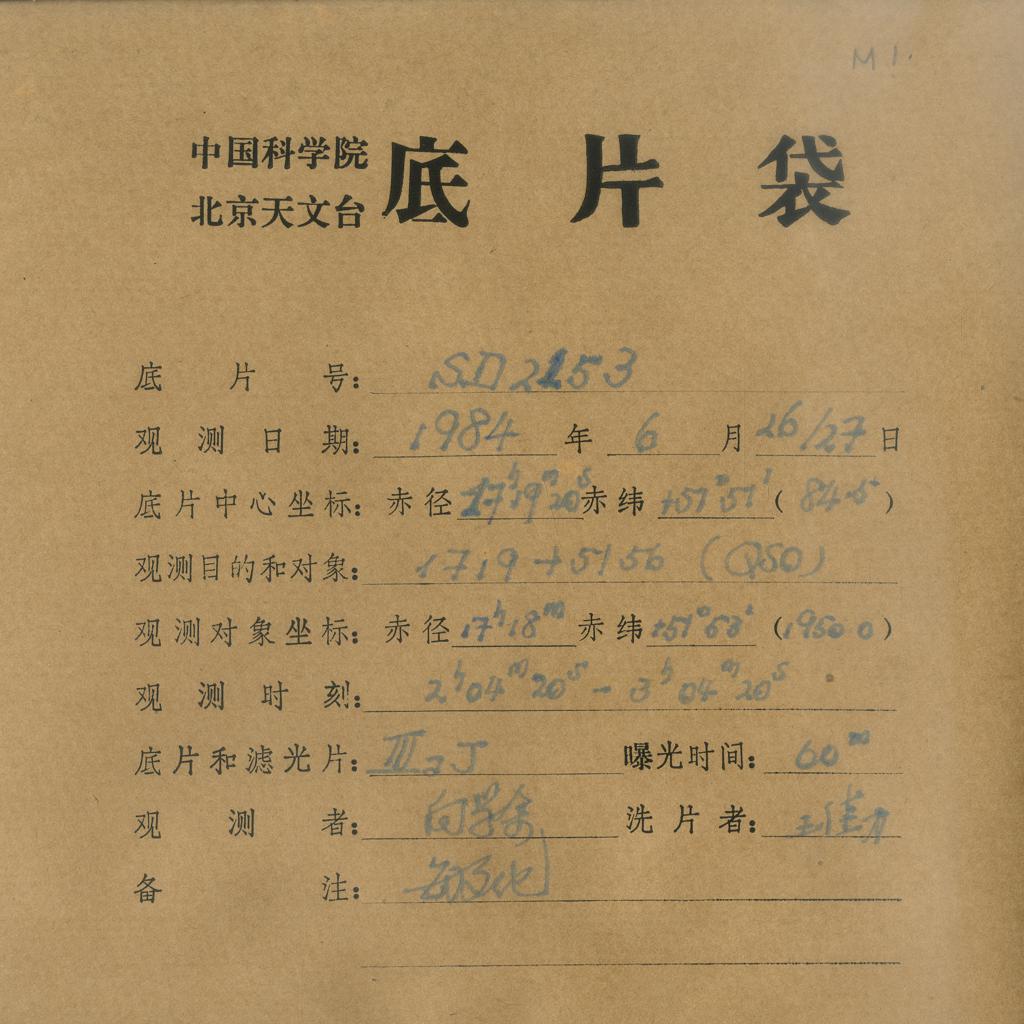 M 1.
中国科学院
北京天文台
底片袋
底片号: SD 2153
观测日期: 1984 年 6 月 26/27 日
底片中心坐标: 赤径 17ʰ19ᵐ20ˢ 赤纬 +51°51′ (84.5)
观测目的和对象: 1719+5156 (QSO)
观测对象坐标: 赤径 17ʰ18ᵐ 赤纬 +51°53′ (1950.0)
观测时刻: 2ʰ04ᵐ20ˢ - 3ʰ04ᵐ20ˢ
底片和滤光片: IIIaJ 曝光时间: 60ᵐ
观测者: 洗片者:
备注: